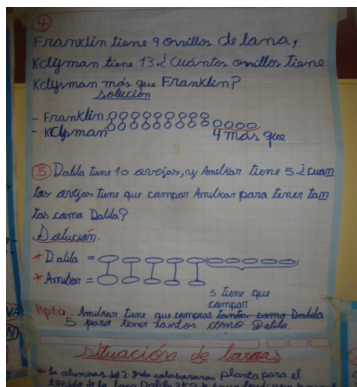 4
Franklin tiene 9 ovillos de lana,
Kclysman tiene 13 ¿Cuántos ovillos tiene
Kclysman más que Franklin?
solución
- Franklin
- Kclysman 4 más que
5 Dalila tiene 10 ovejas, y Amilkar tiene 5 ¿cuan
tas ovejas tiene que compar Amilkar para tener tan
tas como Dalila?
Solución
* Dalila =
* Amilkar =
5 tiene que
compar
Rpta. Amilkar tiene que comprar tantas como Dalila
5 para tener tantos como Dalila.
Situación de